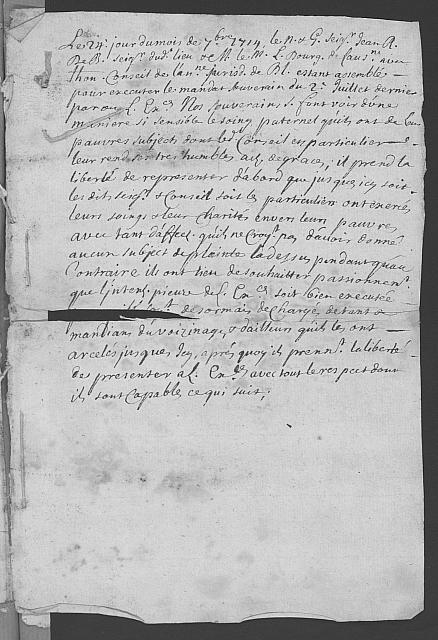 Le 24. jour du mois de 7.bre 1714, le N. & G. Seig.r Jean R.
De R. Seig.r du d. lieu & M. le M. L. Bourg. de avec
Conseil de Jurisd. de Bl. estant assemblés
pour executer le mandat souverain du 2.e Juillet dernier
par ou L. Ex.ces Nos souverains S. font voir d'une
maniere si sensible le soing paternel quils ont de leurs
pauvres subjects dont led. Conseil en particulier
leur rend ses tres humbles act. de graces, il prend la
liberté de representer d'abord que jusques icy soit
les dits Seig.rs & Conseil soit les particuliers ont exercés
leurs soings & leur charités envers leurs pauvres
avec tant d'affect. quils ne croy.t pas d'avoir donné
aucun subject de plainte la dessus, pendant qu'au
Contraire ils ont lieu de souhaitter passionnem.t
que l'intent. pieuse de L. Ex.ces soit bien executée
desormais decharges de tant de
mandians du voizinage, & d'ailleurs quils les ont
arcelés jusques Icy, aprés quoy ils prenn.t la liberté
de presenter a L. Ex.ces avec tout le respect dont
ils sont capables ce qui suit,